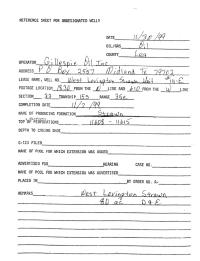 REFERENCE SHEET FOR UNDESIGNATED WELLS
DATE 11/30/99
OIL/GAS Oil
COUNTY Lea
OPERATOR Gillespie Oil Inc
ADDRESS P O Box 2557 Midland Tx 79702
LEASE NAME, WELL NO. West Lovington Strawn Unit
FOOTAGE LOCATION FROM THE N LINE AND FROM THE W LINE
SECTION 33 TOWNSHIP 15S RANGE 36E
COMPLETION DATE 11/2/99
NAME OF PRODUCING FORMATION Strawn
TOP OF PERFORATIONS 11608 - 11615
DEPTH TO CASING SHOE
C-123 FILED
NAME OF POOL FOR WHICH EXTENSION WAS ASKED
ADVERTISED FOR HEARING CASE NO.
NAME OF POOL FOR WHICH EXTENSION WAS ADVERTISED
PLACED IN BY ORDER NO. R-
REMARKS West Lovington Strawn
80 ac